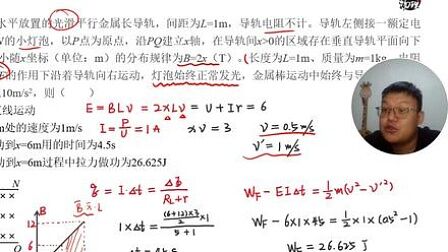 水平放置的光滑平行金属长导轨，间距为L=1m，导轨电阻不计。导轨左侧接一额定电
的小灯泡，以P点为原点，沿PQ建立x轴，在导轨间x>0的区域存在垂直导轨平面向下
小随x坐标（单位：m）的分布规律为B=2x（T）。长度为L=1m、质量为m=1kg、电阻
的作用下沿着导轨向右运动，灯泡始终正常发光，金属棒运动中始终与导
10m/s²，则（ ）
直线运动
m处的速度为1m/s
动到x=6m用的时间为4.5s
动到x=6m过程中拉力做功为26.625J
E = BLv = 2xLv = U + Ir = 6
I = P/U = 1A
xv = 3
v = 0.5m/s
v' = 1m/s
q = I·Δt = ΔΦ/(R_L+r)
W_F - EIΔt = ½m(v² - v'²)
1×Δt = ((6+12)×3/2 ×1)/(5+1)
W_F - 6×1×4.5 = ½×1×(0.5² - 1²)
W_F = 26.625J
B·x·L
12
6
N